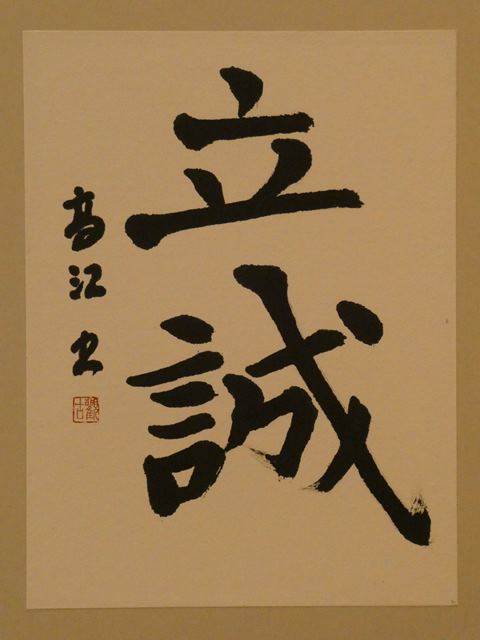 立誠
高江書